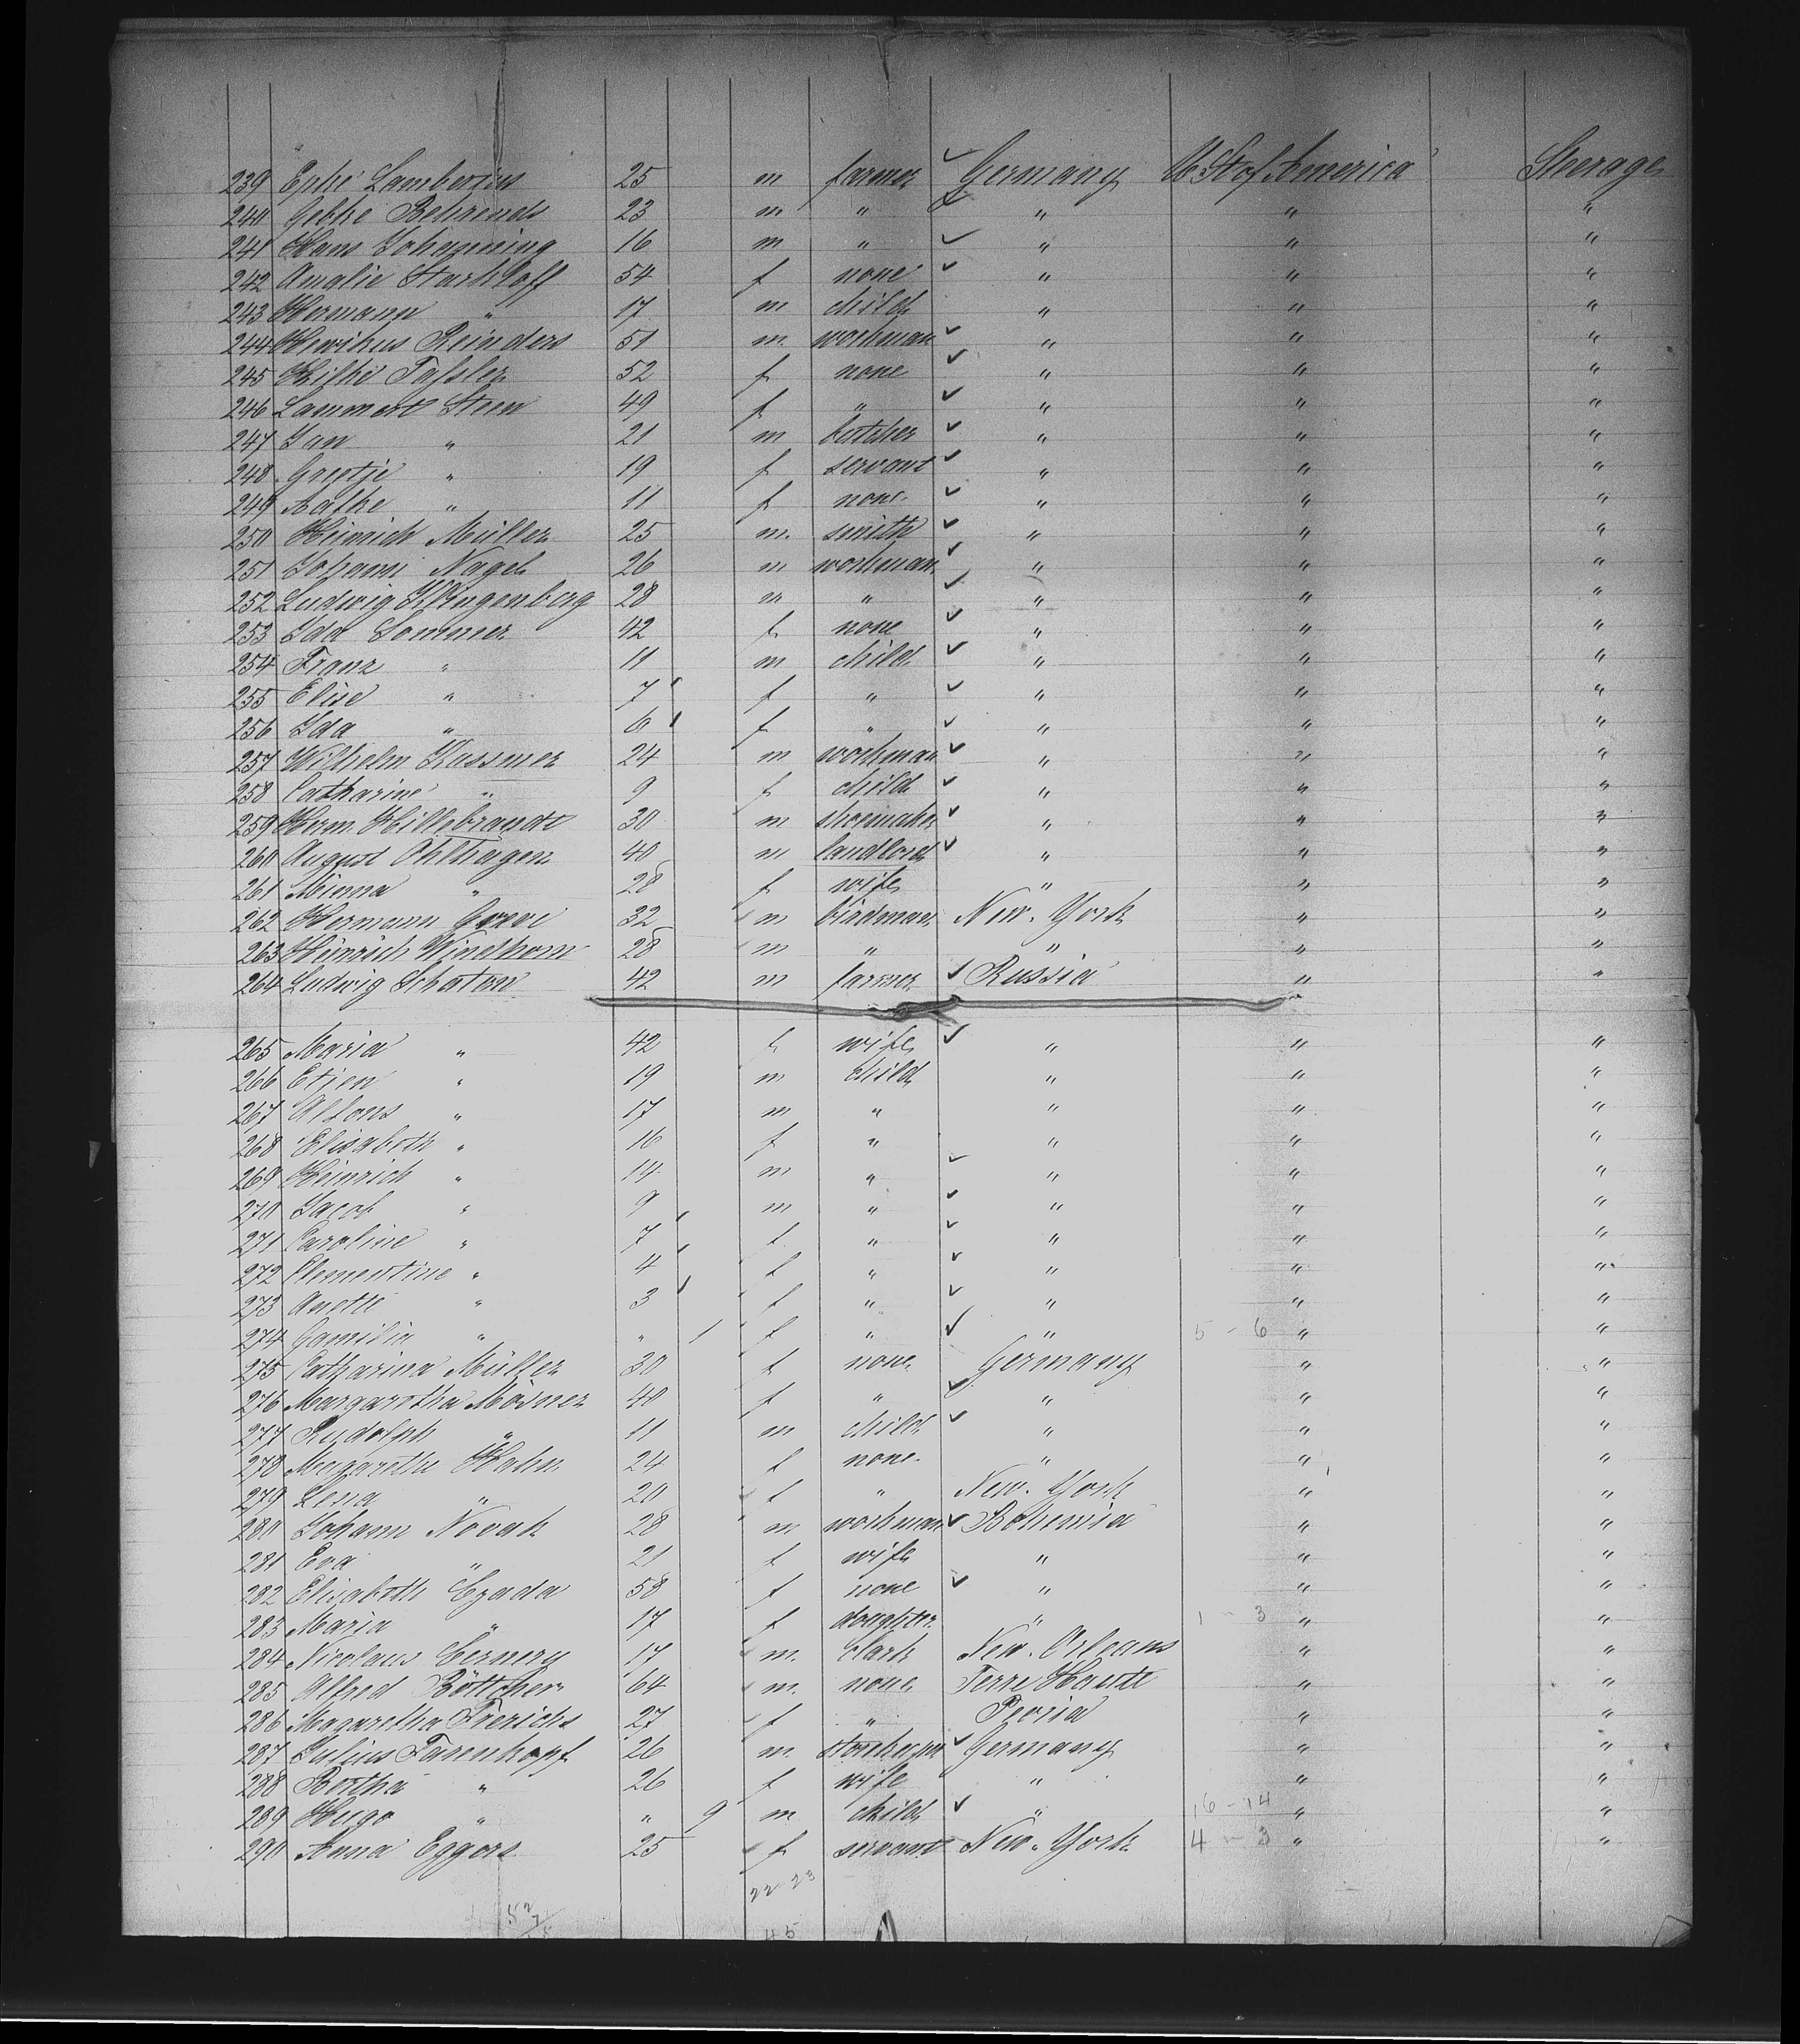 239 Epke Lambertus 25 m farmer Germany U St of America Steerage
240 Gebke Behrends 23 m " " " "
241 Hans Johanning 16 m " " " "
242 Amalie Starkloff 54 f none " " "
243 Hermann " 17 m child " " "
244 Hewikus Reinders 51 m. workman " " "
245 Hilke Tassler 52 f none " " "
246 Lammert Steen 49 f " " " "
247 Jan " 21 m butcher " " "
248 Greetje " 19 f servant " " "
249 Aafke " 11 f none " " "
250 Heinrich Müller 25 m. smith " " "
251 Johann Nagel 26 m workman " " "
252 Ludwig Klingenberg 28 m " " " "
253 Ida Sommer 42 f none " " "
254 Franz " 11 m child " " "
255 Elise " 7 f " " " "
256 Ida " 6 f " " " "
257 Wilhelm Kassner 24 m workman " " "
258 Catharine " 9 f child " " "
259 Herm Hillebrandt 30 m shoemaker " " "
260 August Ohlhagen 40 m landlord " " "
261 Minna " 28 f wife " " "
262 Hermann Greve 32 m New. York " "
263 Heinrich Windhorn 28 m " " " "
264 Ludwig Schatan 42 m farmer Russia " "
265 Maria " 42 f wife " " "
266 Etjen " 19 m child " " "
267 Alfons " 17 m " " " "
268 Elisabeth " 16 f " " " "
269 Heinrich " 14 m " " " "
270 Jacob " 9 m " " " "
271 Caroline " 7 f " " " "
272 Clementine " 4 f " " " "
273 Anette " 3 f " " " "
274 Gamilia " " 1 f " " 5 - 6 " "
275 Catharina Müller 30 f none Germany " "
276 Margaretha Mösner 40 f " " " "
277 Rudolph " 11 m child " " "
278 Megarethe Hahn 24 f none " " "
279 Lena " 20 f " New. York " "
280 Johann Novak 28 m workman Bohemia " "
281 Eva " 21 f wife " " "
282 Elisabeth Czada 58 f none " " "
283 Maria " 17 f daughter " 1 - 3 " "
284 Nicolaus Cernery 17 m. Clark New. Orleans " "
285 Alfred Böttcher 64 m. none Terre Haute " "
286 Magaretha Frerichs 27 f " Peoria " "
287 Julius Farenkopf 26 m. Germany " "
288 Bertha " 26 f wife " " "
289 Hugo " " 9 m child " 16 - 14 " "
290 Anna Eggers 25 f servant New. York 4 - 3 " "
22 23
45